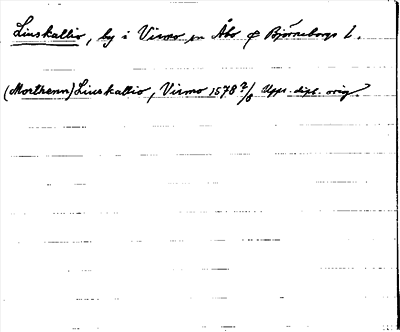 Linskallio, by i Virmo sn Åbo o Björneborgs l.
(Morthenn) Linskallio, Virmo 1578 7/8 Upps. dipl. orig.